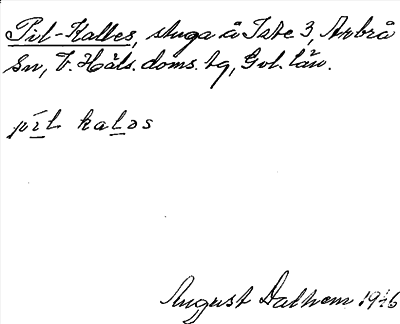 Pil-Kalles, stuga å Iste 3, Arbrå
sn, V. Häls. doms. tg, Gvl. län.
pīl kaləs
August Dalhem 1946